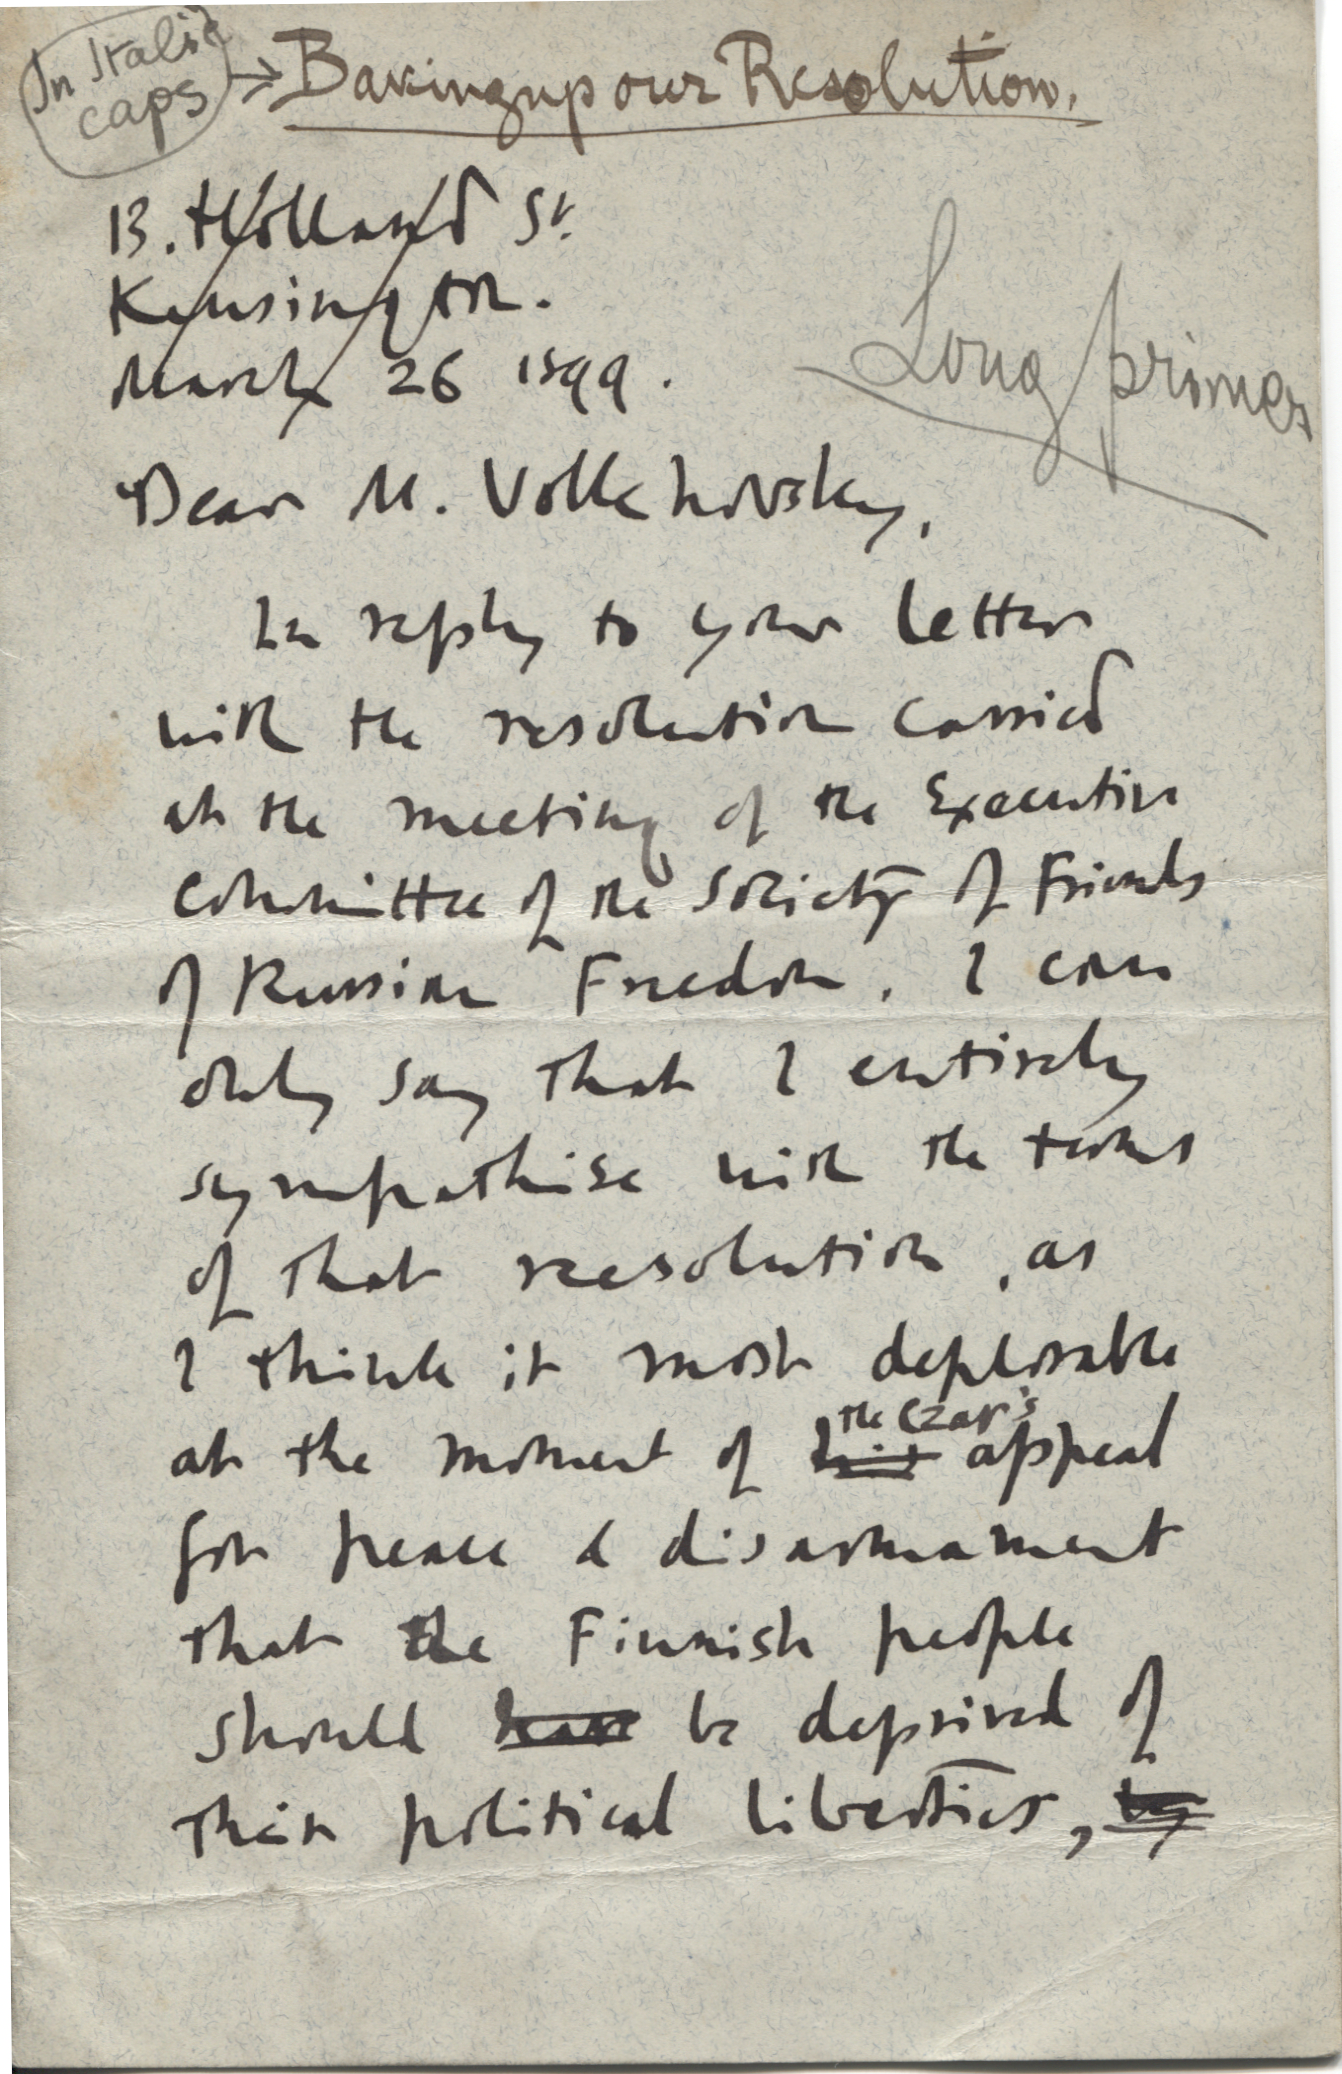 In Italic
caps
Baking up our Resolution.
13. Holland St.
Kensington.
March 26 1899.
Long primer
Dear M. Volkhovsky,
In reply to your letter
with the resolution carried
at the meeting of the Executive
Committee of the Society of Friends
of Russian Freedom, I can
only say that I entirely
sympathise with the terms
of that resolution, as
I think it most deplorable
the Czar's
at the moment of his appeal
for peace & disarmament
that the Finnish people
should have be deprived of
their political liberties, by